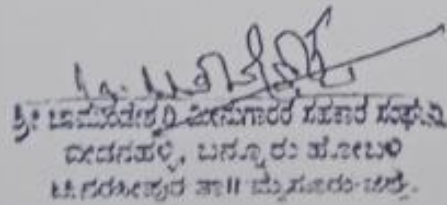 ಶ್ರೀ ಚಾಮುಂಡೇಶ್ವರಿ ಮೀನುಗಾರರ ಸಹಕಾರ ಸಂಘ.ನಿ
ಬೀಡನಹಳ್ಳಿ, ಬನ್ನೂರು ಹೋಬಳಿ
ಟಿ.ನರಸೀಪುರ ತಾ॥ ಮೈಸೂರು-ಜಿಲ್ಲೆ.